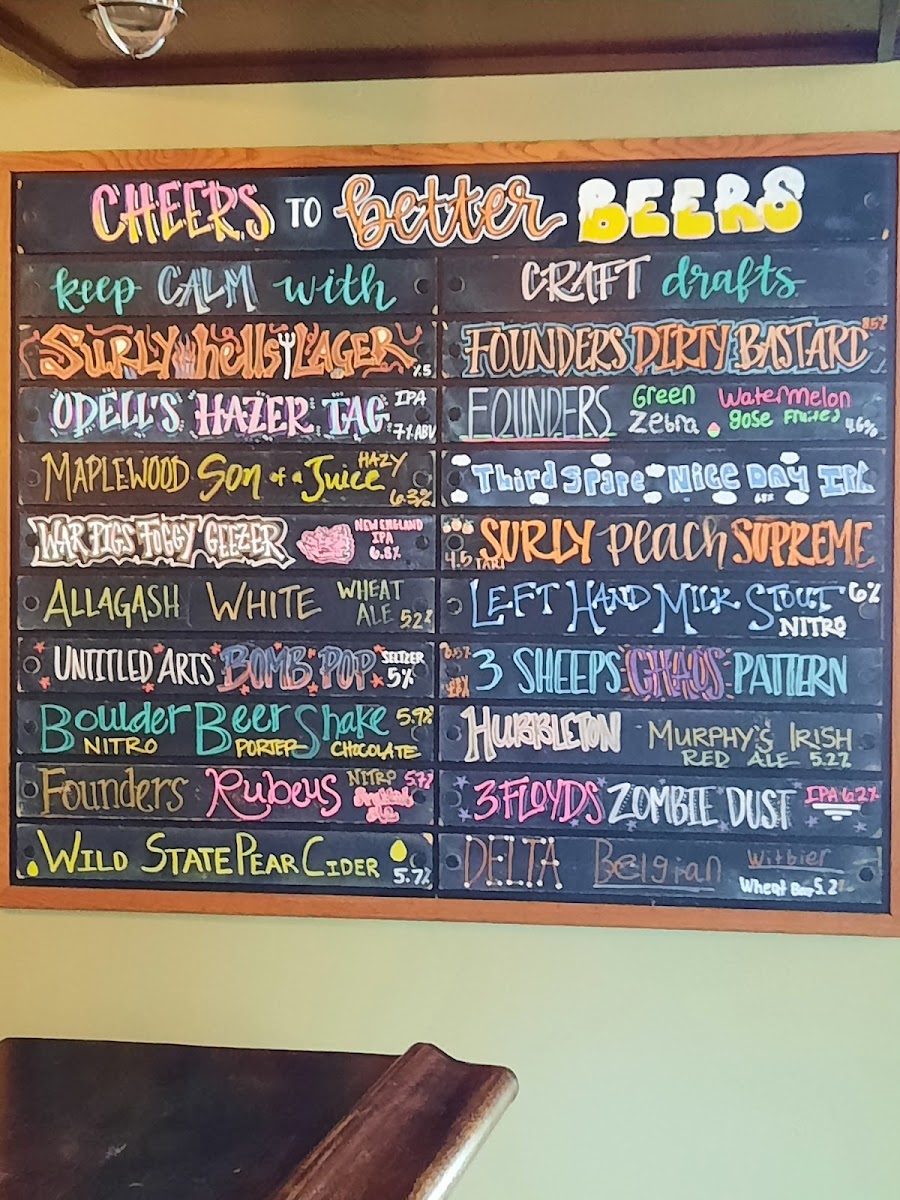 CHEERS TO better BEERS
keep CALM with
SURLY hells LAGER %5
ODELL'S HAZER TAG IPA 7% ABV
MAPLEWOOD SON of a JUICE HAZY 6.3%
WAR PIGS FOGGY GEEZER NEW ENGLAND IPA 6.8%
ALLAGASH WHITE WHEAT ALE 5.2%
UNTITLED ARTS BOMB POP SELTZER 5%
Boulder Beer Shake 5.9%
NITRO PORTER CHOCOLATE
Founders Rubeus NITRO 5.7%
WILD STATE PEAR CIDER 5.7%
CRAFT drafts
FOUNDERS DIRTY BASTARD 8.5%
FOUNDERS Green Zebra Watermelon gose Fruited 4.6%
Third Space Nice Day IPA
4.5 TART SURLY Peach SUPREME
LEFT HAND MILK STOUT 6%
NITRO
3 SHEEPS CHAOS PATTERN
HUBBLETON MURPHY'S IRISH
RED ALE 5.2%
3 FLOYDS ZOMBIE DUST IPA 6.2%
DELTA Belgian Witbier
Wheat Beer 5.2